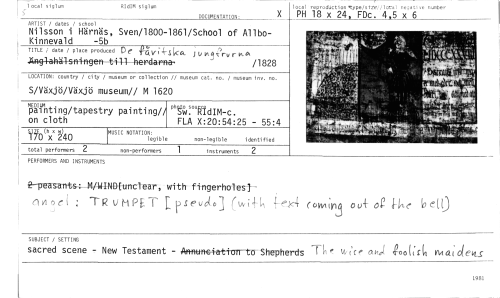 local siglum RIdIM siglum
DOCUMENTATION: X
local reproduction type/size//local negative number
PH 18 x 24, FDc. 4,5 x 6
ARTIST / dates / school
Nilsson i Härnäs, Sven/1800-1861/School of Allbo-
Kinnevald -5b
TITLE / date / place produced De fåvitska jungfrurna
Änglahälsningen till herdarna /1828
LOCATION: country / city / museum or collection // museum cat. no. / museum inv. no.
S/Växjö/Växjö museum// M 1620
MEDIUM
painting/tapestry painting//
on cloth
photo source
Sw. RIdIM-c.
FLA X:20:54:25 - 55:4
SIZE (h x w)
170 x 240
MUSIC NOTATION:
legible non-legible identified
total performers 2 non-performers 1 instruments 2
PERFORMERS AND INSTRUMENTS
2 peasants: M/WIND[unclear, with fingerholes]
angel: TRUMPET [pseudo] (with text coming out of the bell)
SUBJECT / SETTING
sacred scene - New Testament - Annunciation to Shepherds The wise and foolish maidens